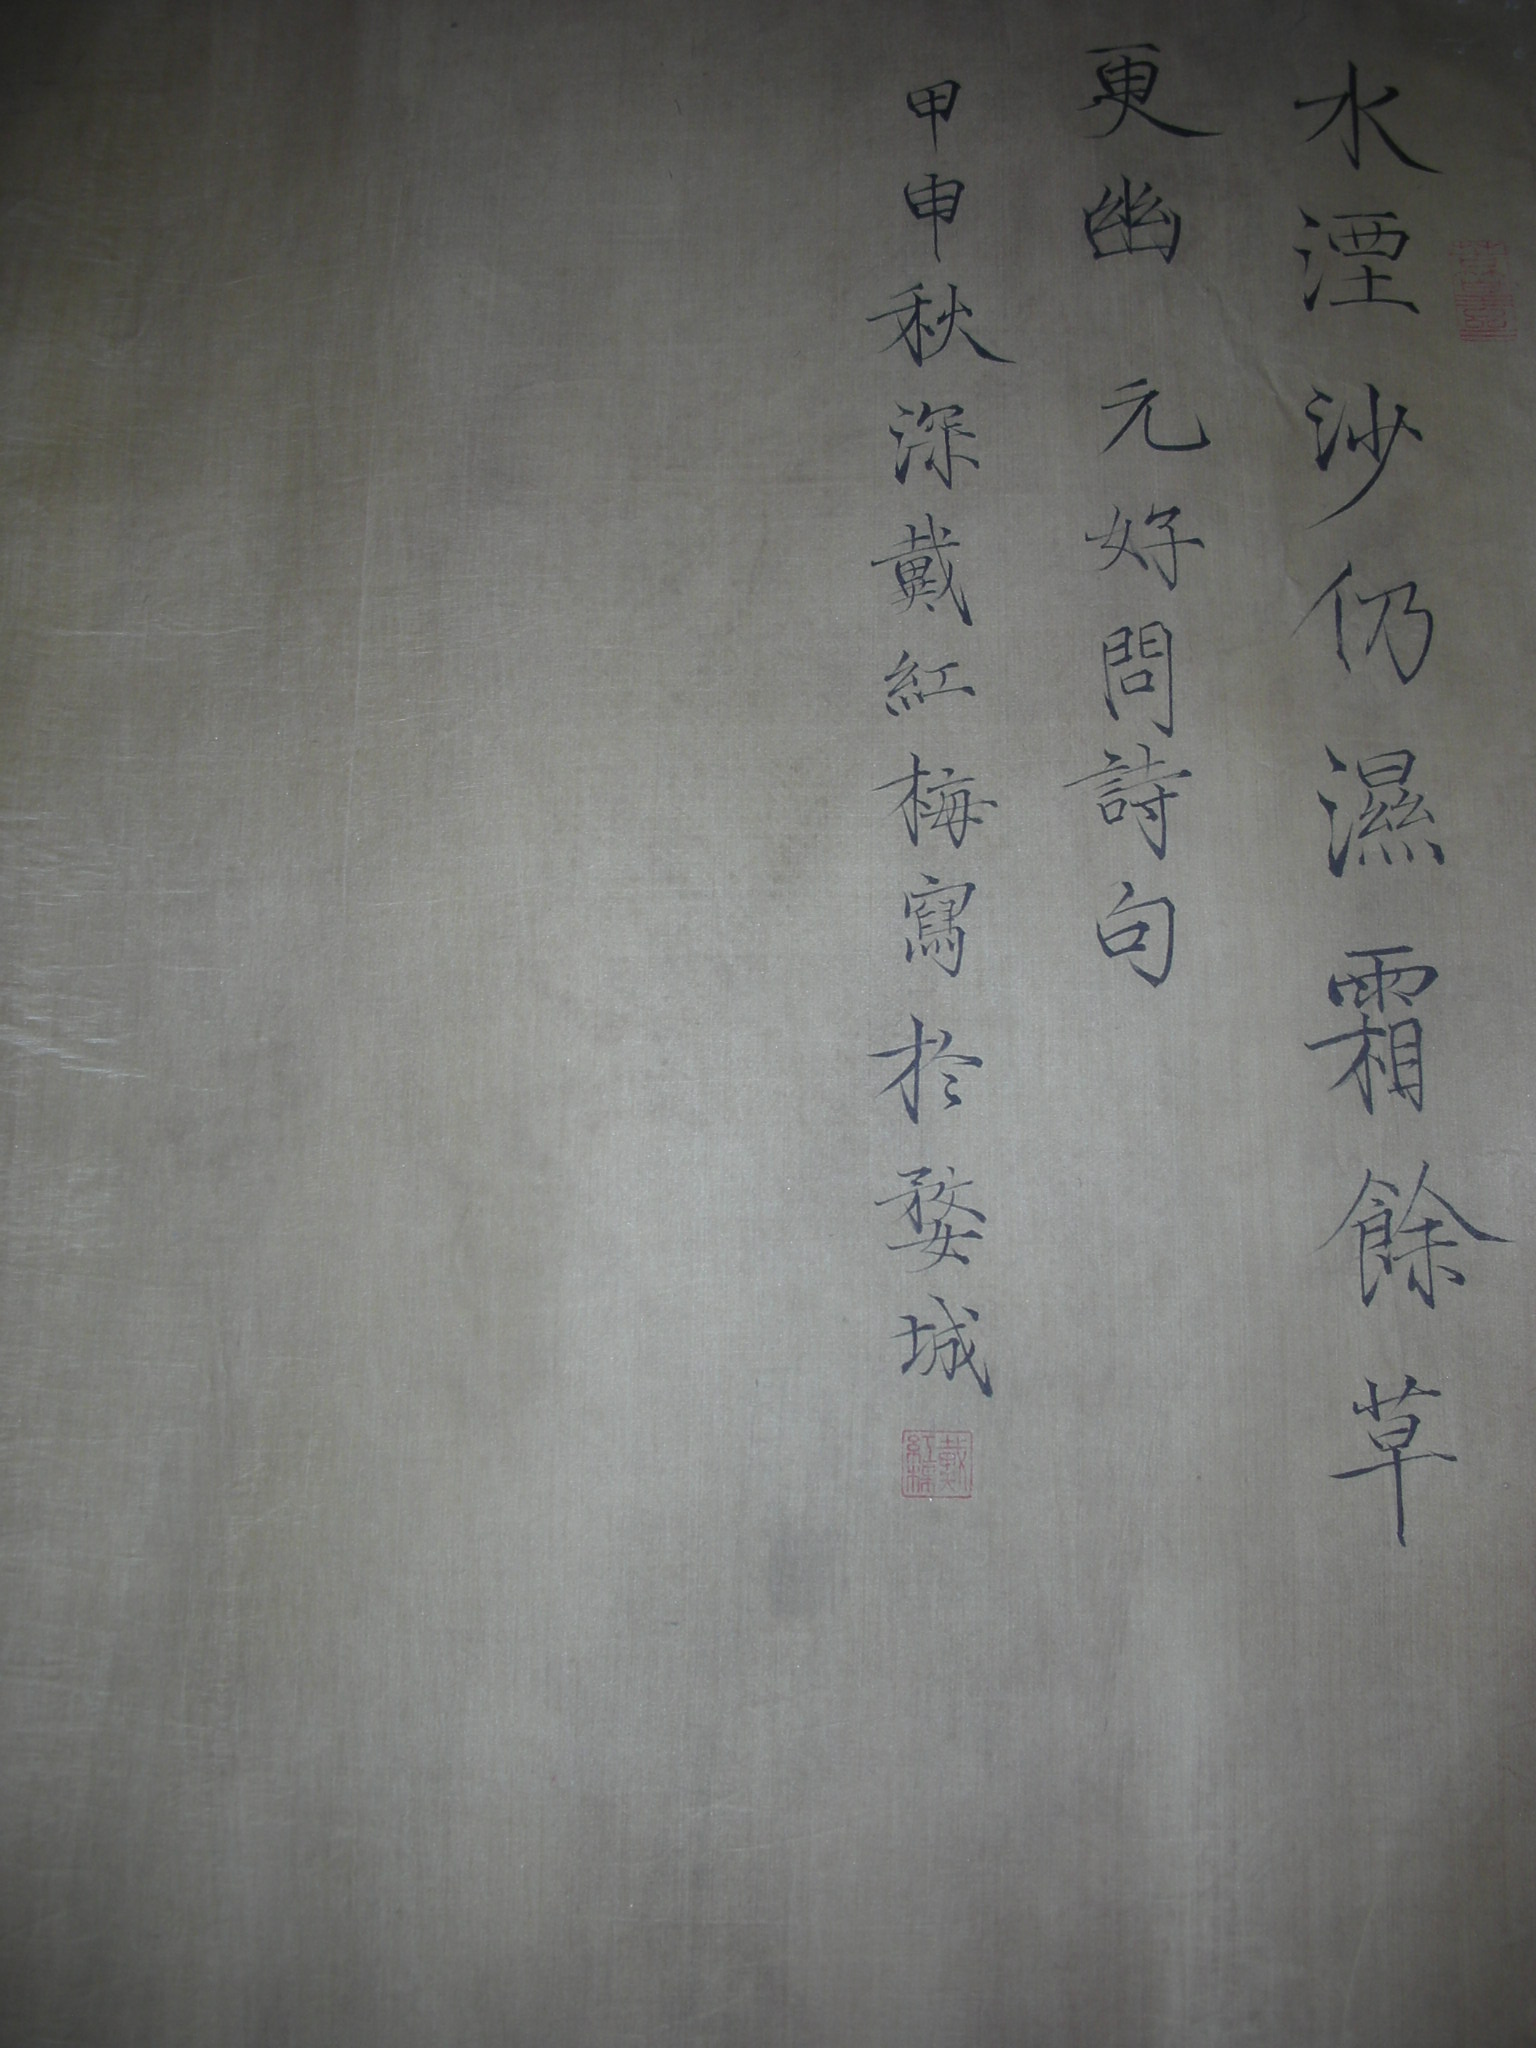 水湮沙仍濕霜餘草
更幽 元好問詩句
甲申秋深戴紅梅寫於婺城
戴紅梅